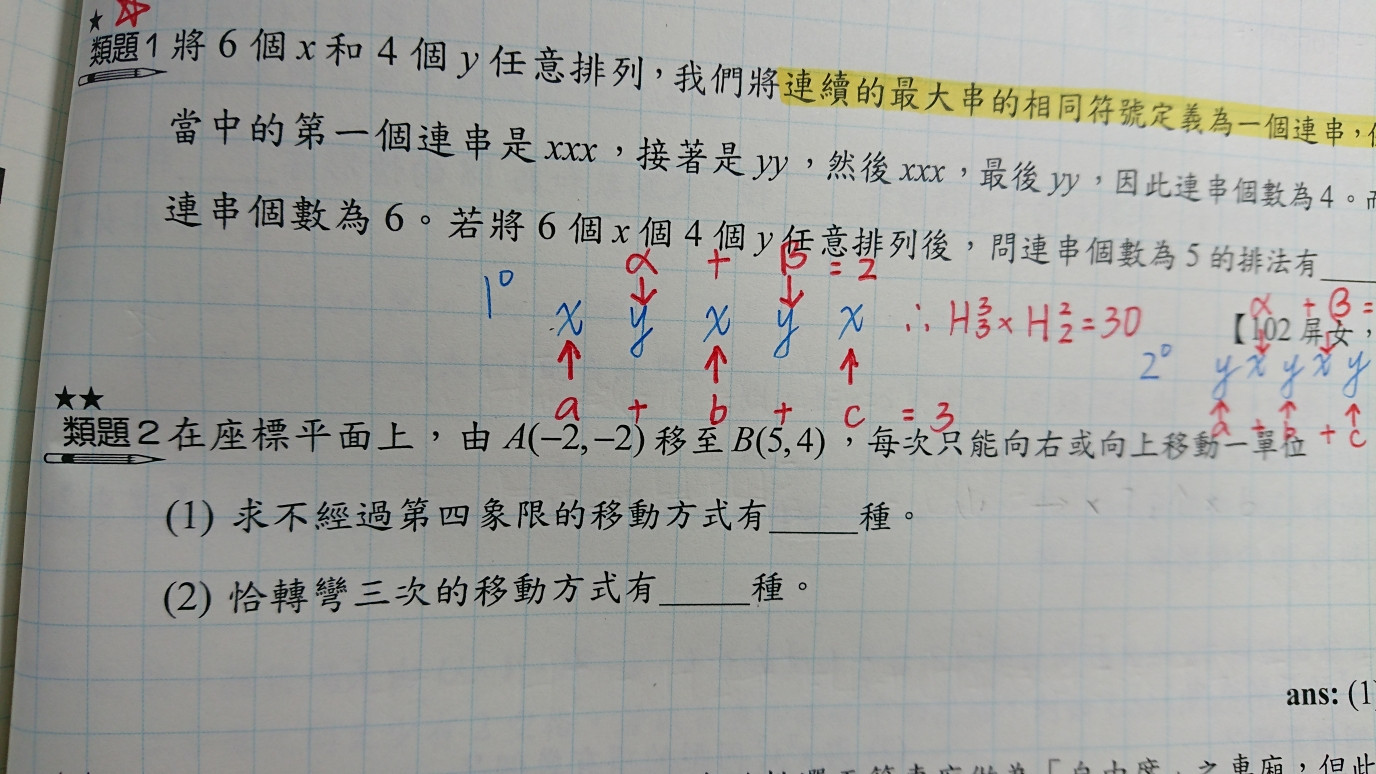 ★ ☆
類題1 將 6 個 x 和 4 個 y 任意排列,我們將連續的最大串的相同符號定義為一個連串,
當中的第一個連串是 xxx,接著是 yy,然後 xxx,最後 yy,因此連串個數為 4。
連串個數為 6。若將 6 個 x 個 4 個 y 任意排列後,問連串個數為 5 的排法有____
α + β = 2
1° x y x y x ∴ H³₃ × H²₂ = 30
a + b + c = 3
【102 屏女,
α + β =
2° y x y x y
a + b + c
★★
類題2 在座標平面上,由 A(−2,−2) 移至 B(5,4),每次只能向右或向上移動一單位
(1) 求不經過第四象限的移動方式有_____種。
(2) 恰轉彎三次的移動方式有_____種。
ans: (1)